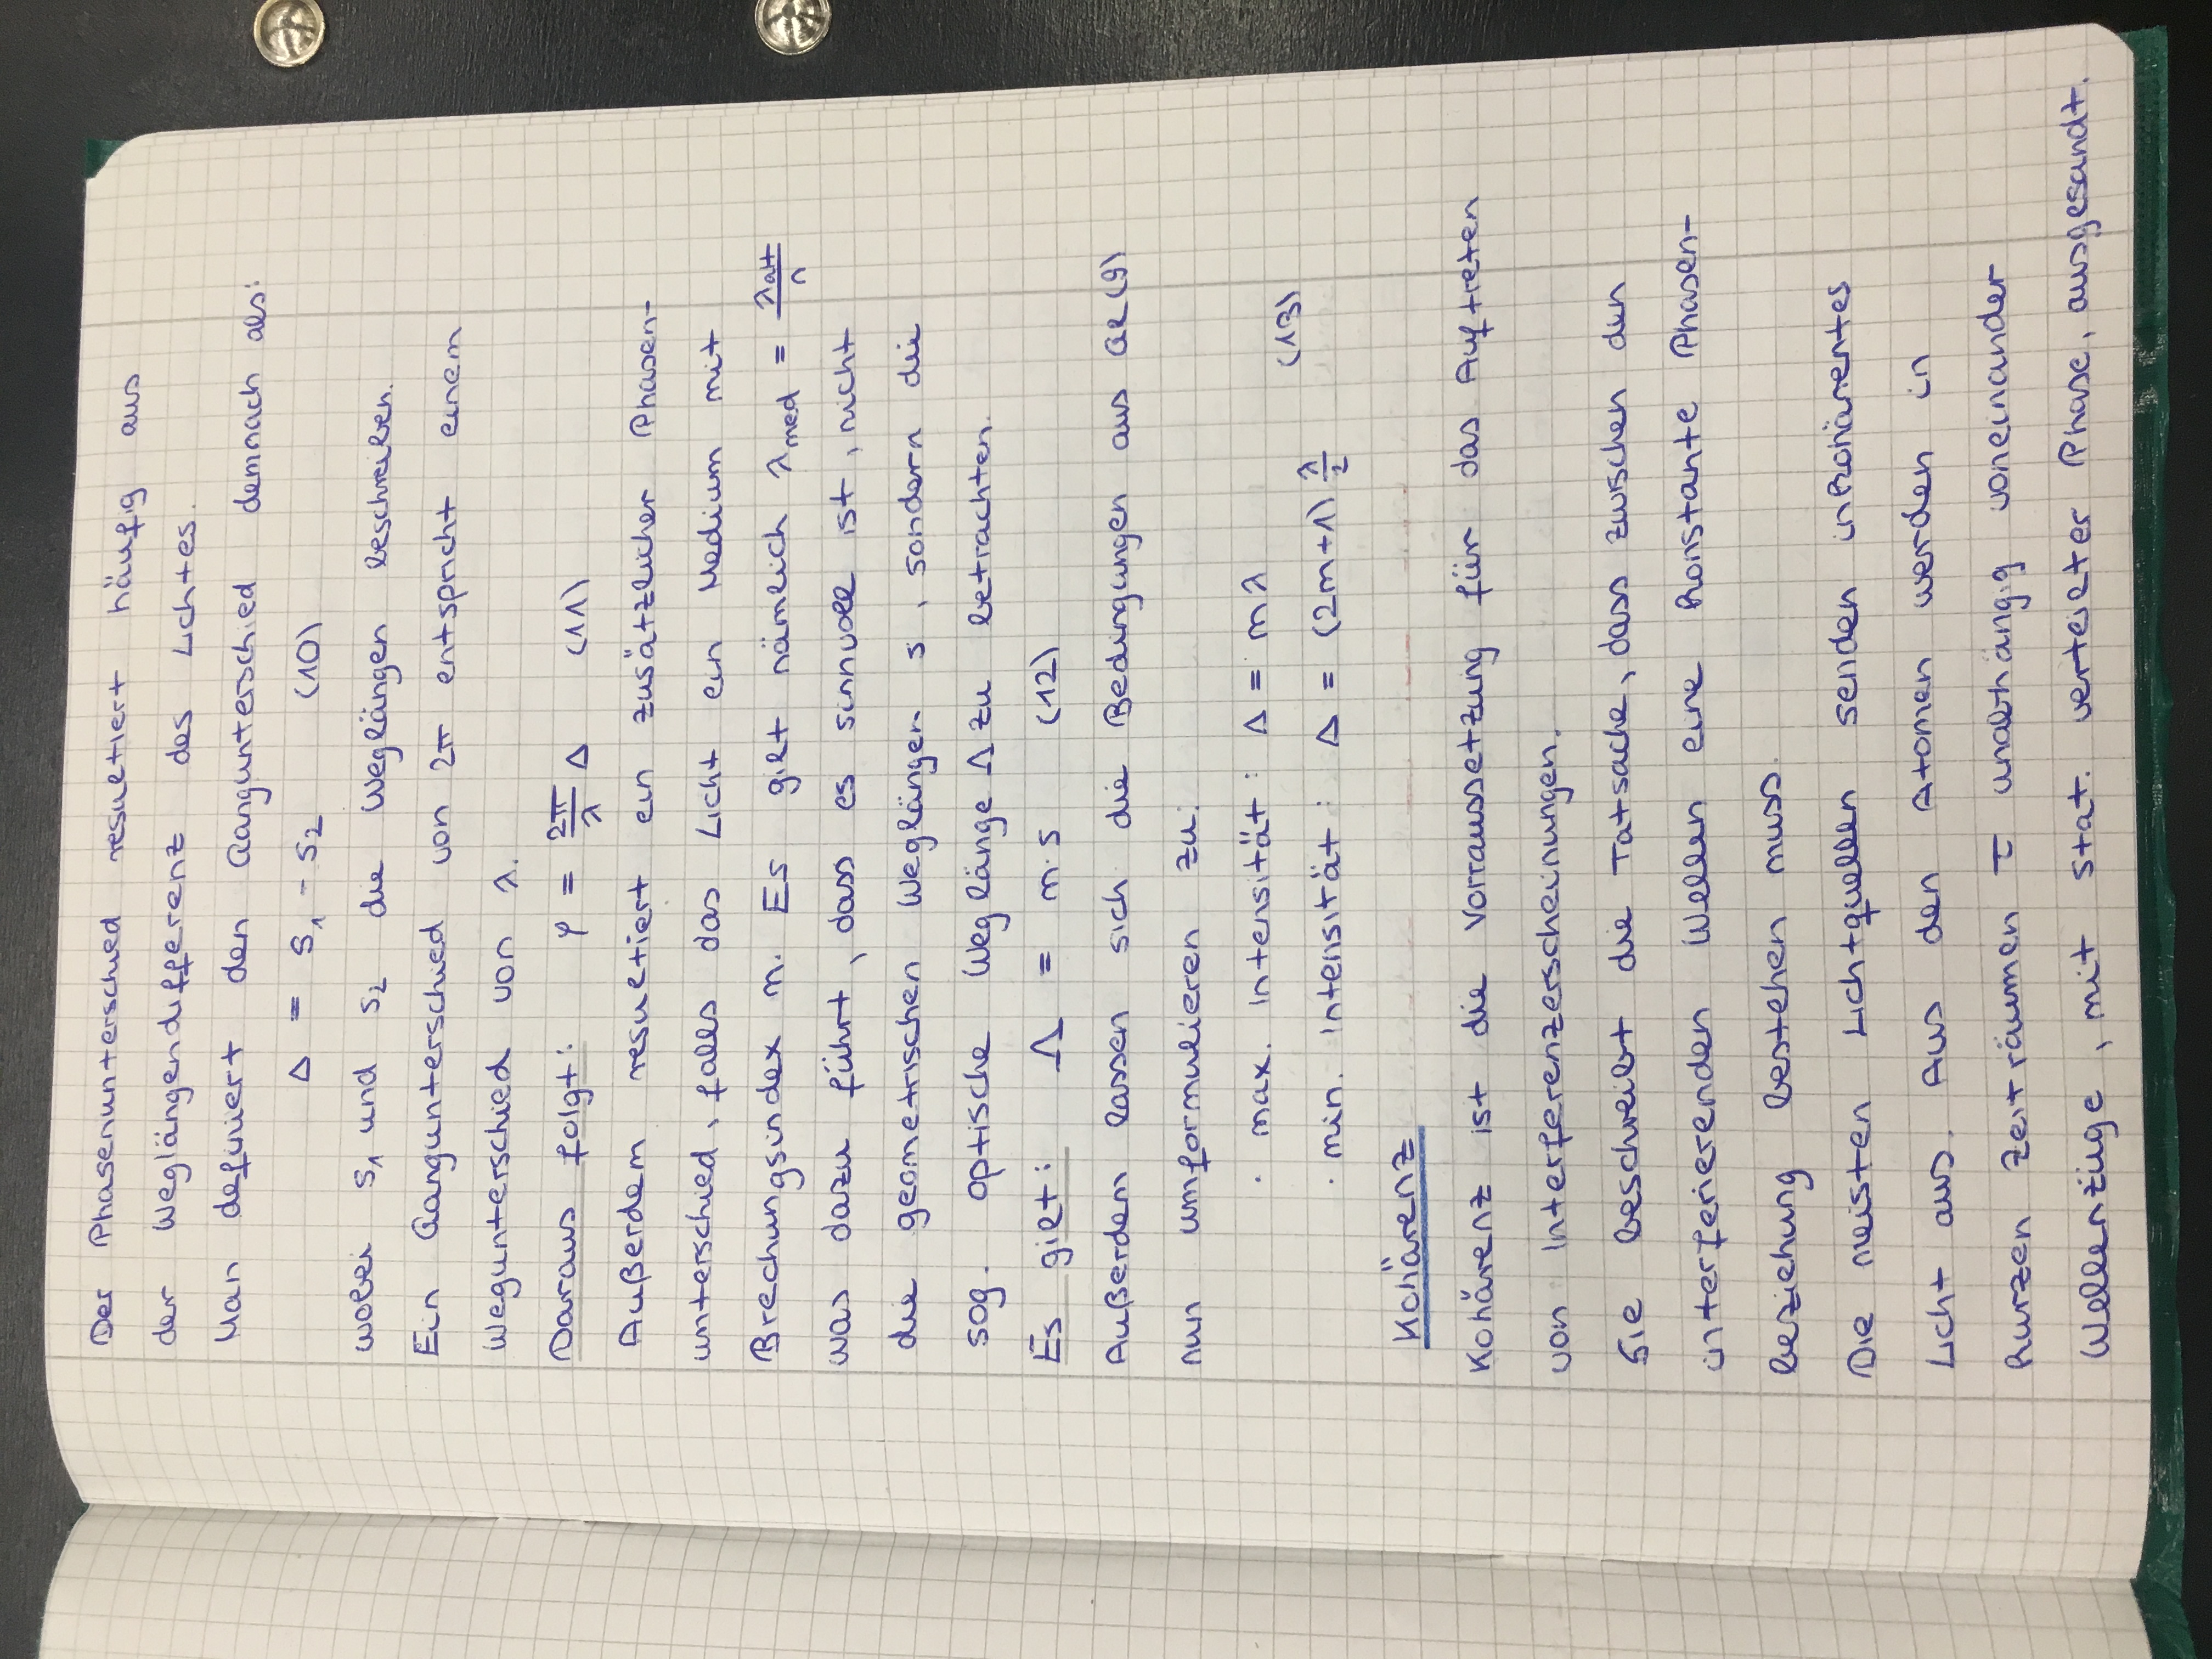 Der Phasenunterschied resultiert häufig aus
der Weglängendifferenz des Lichtes.
Man definiert den Gangunterschied demnach als:
Δ = s₁ - s₂ (10)
wobei s₁ und s₂ die Weglängen beschreiben.
Ein Gangunterschied von 2π entspricht einem
Wegunterschied von λ.
Daraus folgt: φ = 2π/λ Δ (11)
Außerdem resultiert ein zusätzlicher Phasen-
unterschied, falls das Licht ein Medium mit
Brechungsindex n. Es gilt nämlich λmed = λalt/n
was dazu führt, dass es sinnvoll ist, nicht
die geometrischen Weglängen s, sondern die
sog. optische Weglänge Λ zu betrachten.
Es gilt: Λ = n·s (12)
Außerdem lassen sich die Bedingungen aus Gl(9)
nun umformulieren zu:
· max. Intensität: Δ = mλ
(13)
· min. Intensität: Δ = (2m+1) λ/2
Kohärenz
Kohärenz ist die Vorraussetzung für das Auftreten
von Interferenzerscheinungen.
Sie beschreibt die Tatsache, dass zwischen den
interferierenden Wellen eine konstante Phasen-
beziehung bestehen muss.
Die meisten Lichtquellen senden inkohärentes
Licht aus. Aus den Atomen werden in
kurzen Zeiträumen τ unabhängig voneinander
Wellenzüge, mit stat. verteilter Phase, ausgesandt.